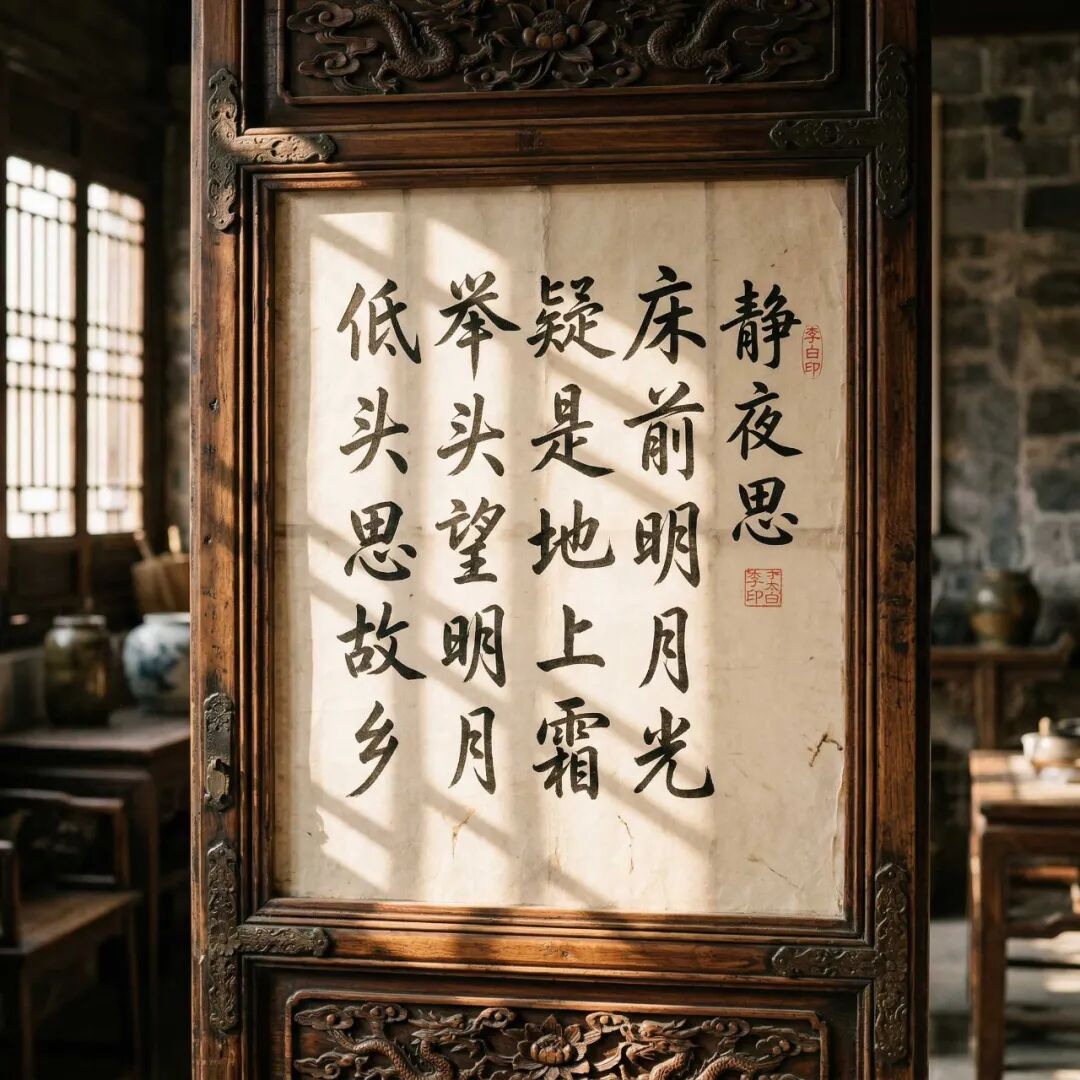 静夜思
床前明月光
疑是地上霜
举头望明月
低头思故乡
李白印